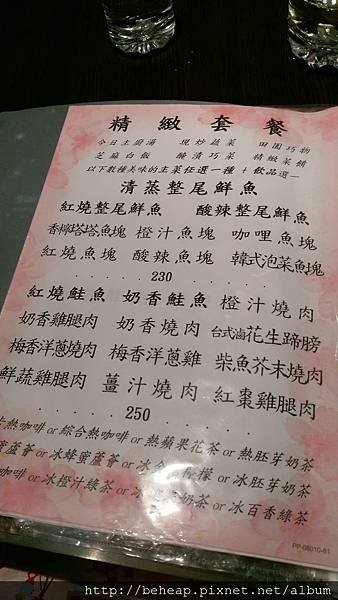 精緻套餐
今日主廚湯 現炒蔬菜 田園巧物
芝麻白飯 醃漬巧菜 精緻菜餚
以下數種美味的主菜任選一種 + 飲品選一
清蒸整尾鮮魚
紅燒整尾鮮魚 酸辣整尾鮮魚
香檸塔塔魚塊 橙汁魚塊 咖哩魚塊
紅燒魚塊 酸辣魚塊 韓式泡菜魚塊
230
紅燒鮭魚 奶香鮭魚 橙汁燒肉
奶香雞腿肉 奶香燒肉 台式滷花生蹄膀
梅香洋蔥燒肉 梅香洋蔥雞 柴魚芥末燒肉
鮮蔬雞腿肉 薑汁燒肉 紅棗雞腿肉
250
熱咖啡 or 綜合熱咖啡 or 熱蘋果花茶 or 熱胚芽奶茶
蘆薈 or 冰蜂蜜蘆薈 or 冰 檸檬 or 冰胚芽奶茶
咖啡 or 冰橙汁綠茶 or 奶茶 or 冰百香綠茶
PP-08010-81
http://beheap.pixnet.net/album